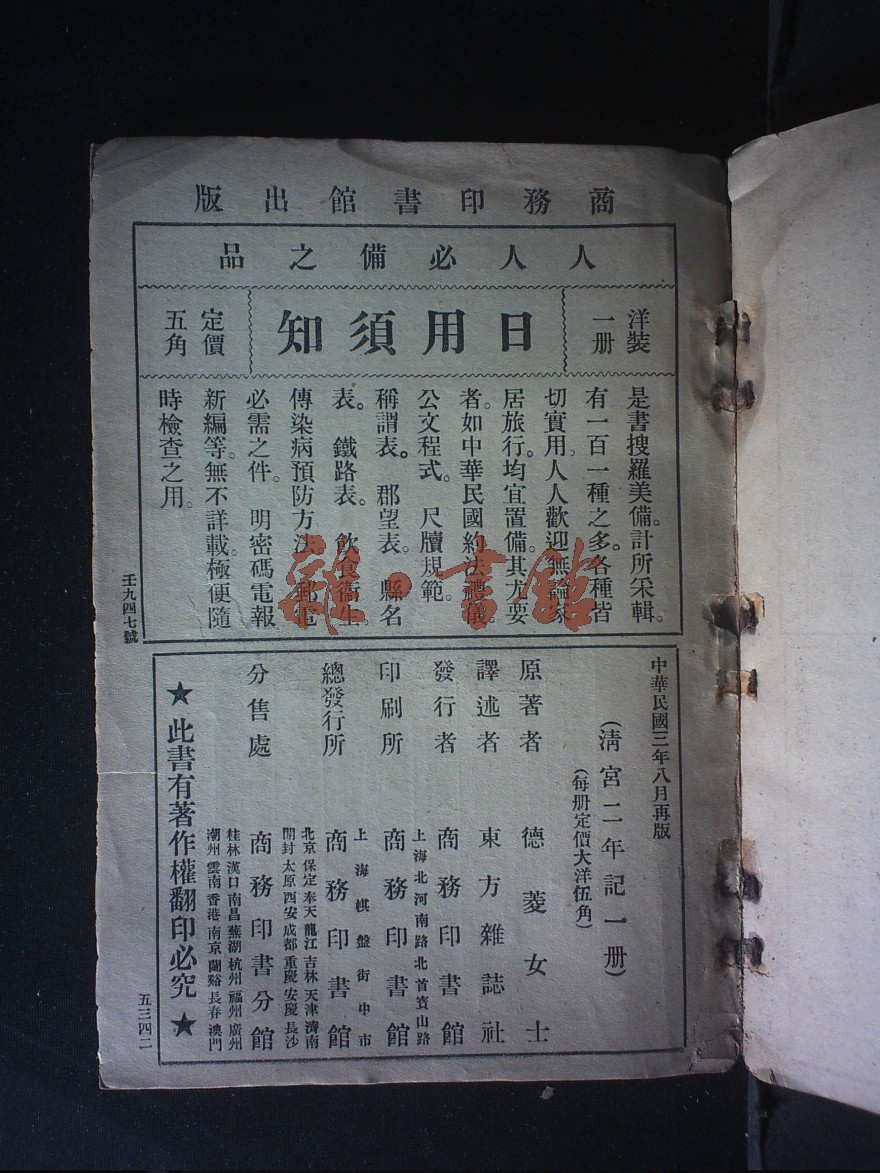 商務印書館出版
人人必備之品
洋裝一册
日用須知
定價五角
是書搜羅美備。計所采輯。
有一百一種之多。各種皆
切實用。人人歡迎。無論家
居旅行。均宜置備。其尤要
者。如中華民國約法。禮儀。
公文程式。尺牘規範。
稱謂表。郡望表。縣名
表。鐵路表。飲食衛生。
傳染病預防方法。郵電
必需之件。明密碼電報
新編等。無不詳載。極便隨
時檢查之用。
壬九四七號
中華民國三年八月再版
(清宮二年記一册)
(每册定價大洋伍角)
原著者 德菱女士
譯述者 東方雜誌社
發行者 商務印書館
上海北河南路北首寶山路
印刷所 商務印書館
上海棋盤街中市
總發行所 商務印書館
北京保定奉天龍江吉林天津濟南
開封太原西安成都重慶安慶長沙
分售處 商務印書分館
桂林漢口南昌蕪湖杭州福州廣州
潮州雲南香港南京蘭谿長春澳門
★此書有著作權翻印必究★
五三四二
雜·書館